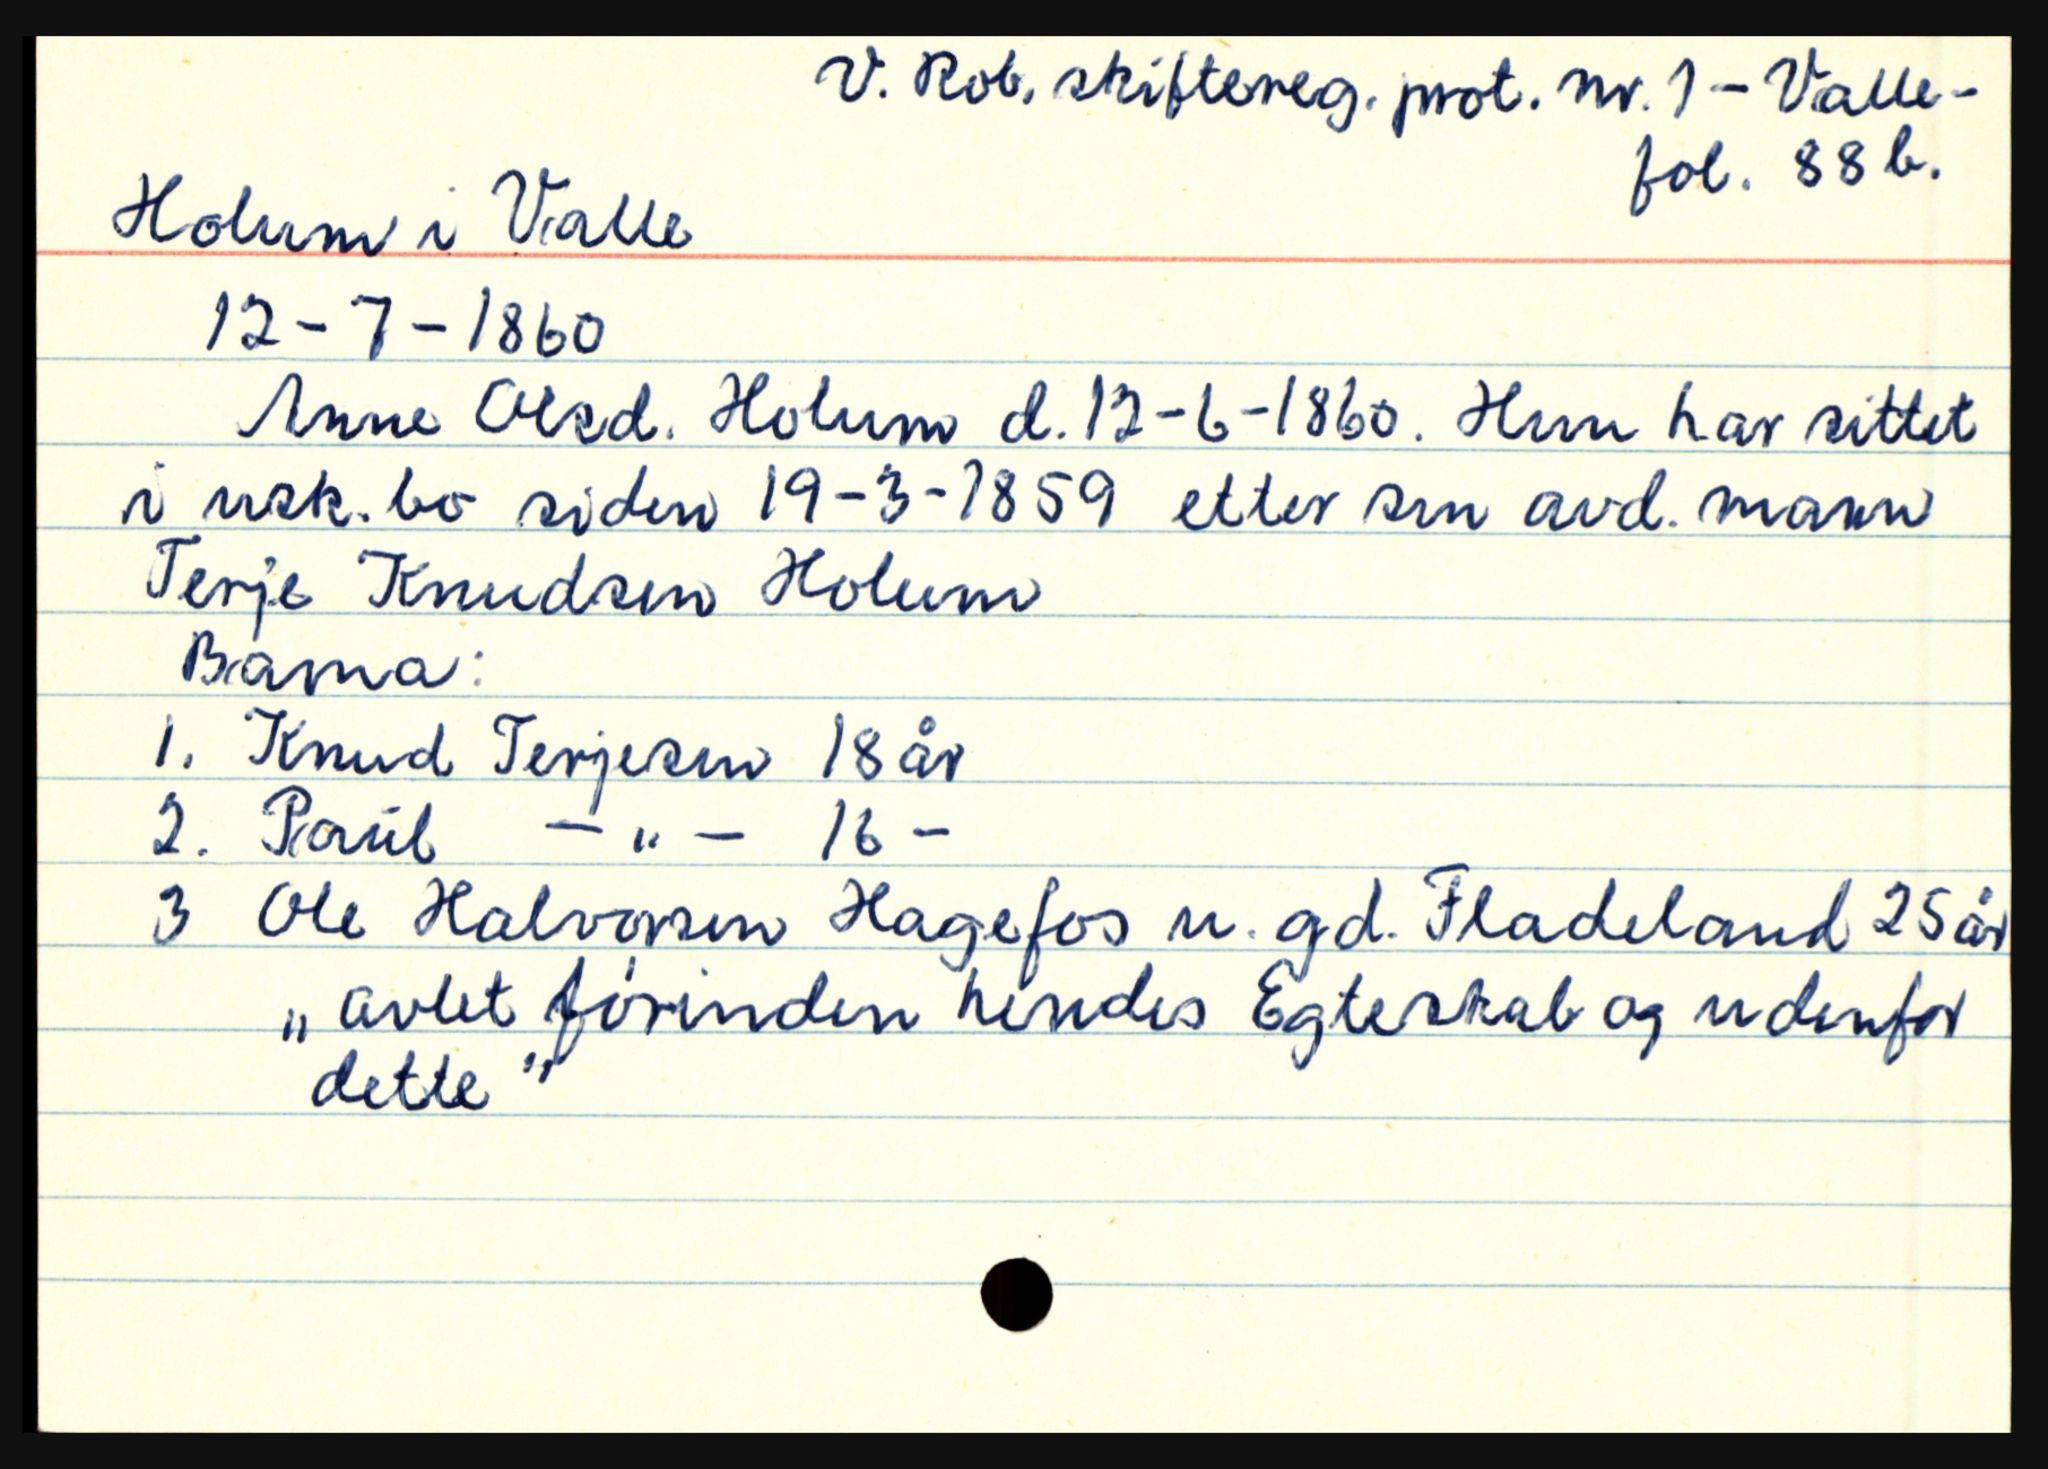 V. Rob. skiftereg. prot. nr. 1 - Valle -
fol. 88 b.
Holum i Valle
12-7-1860
Anne Olsd. Holum d. 12-6-1860. Hun har sittet
i usk. bo siden 19-3-1859 etter sin avd. mann
Terje Knudsen Holum
Barna:
1. Knud Terjesen 18 år
2. Paul — " — 16 —
3 Ole Halvorsen Hagefos u. gd. Fladeland 25 år
„ avlet forinden hendes Egteskab og udenfor
dette "